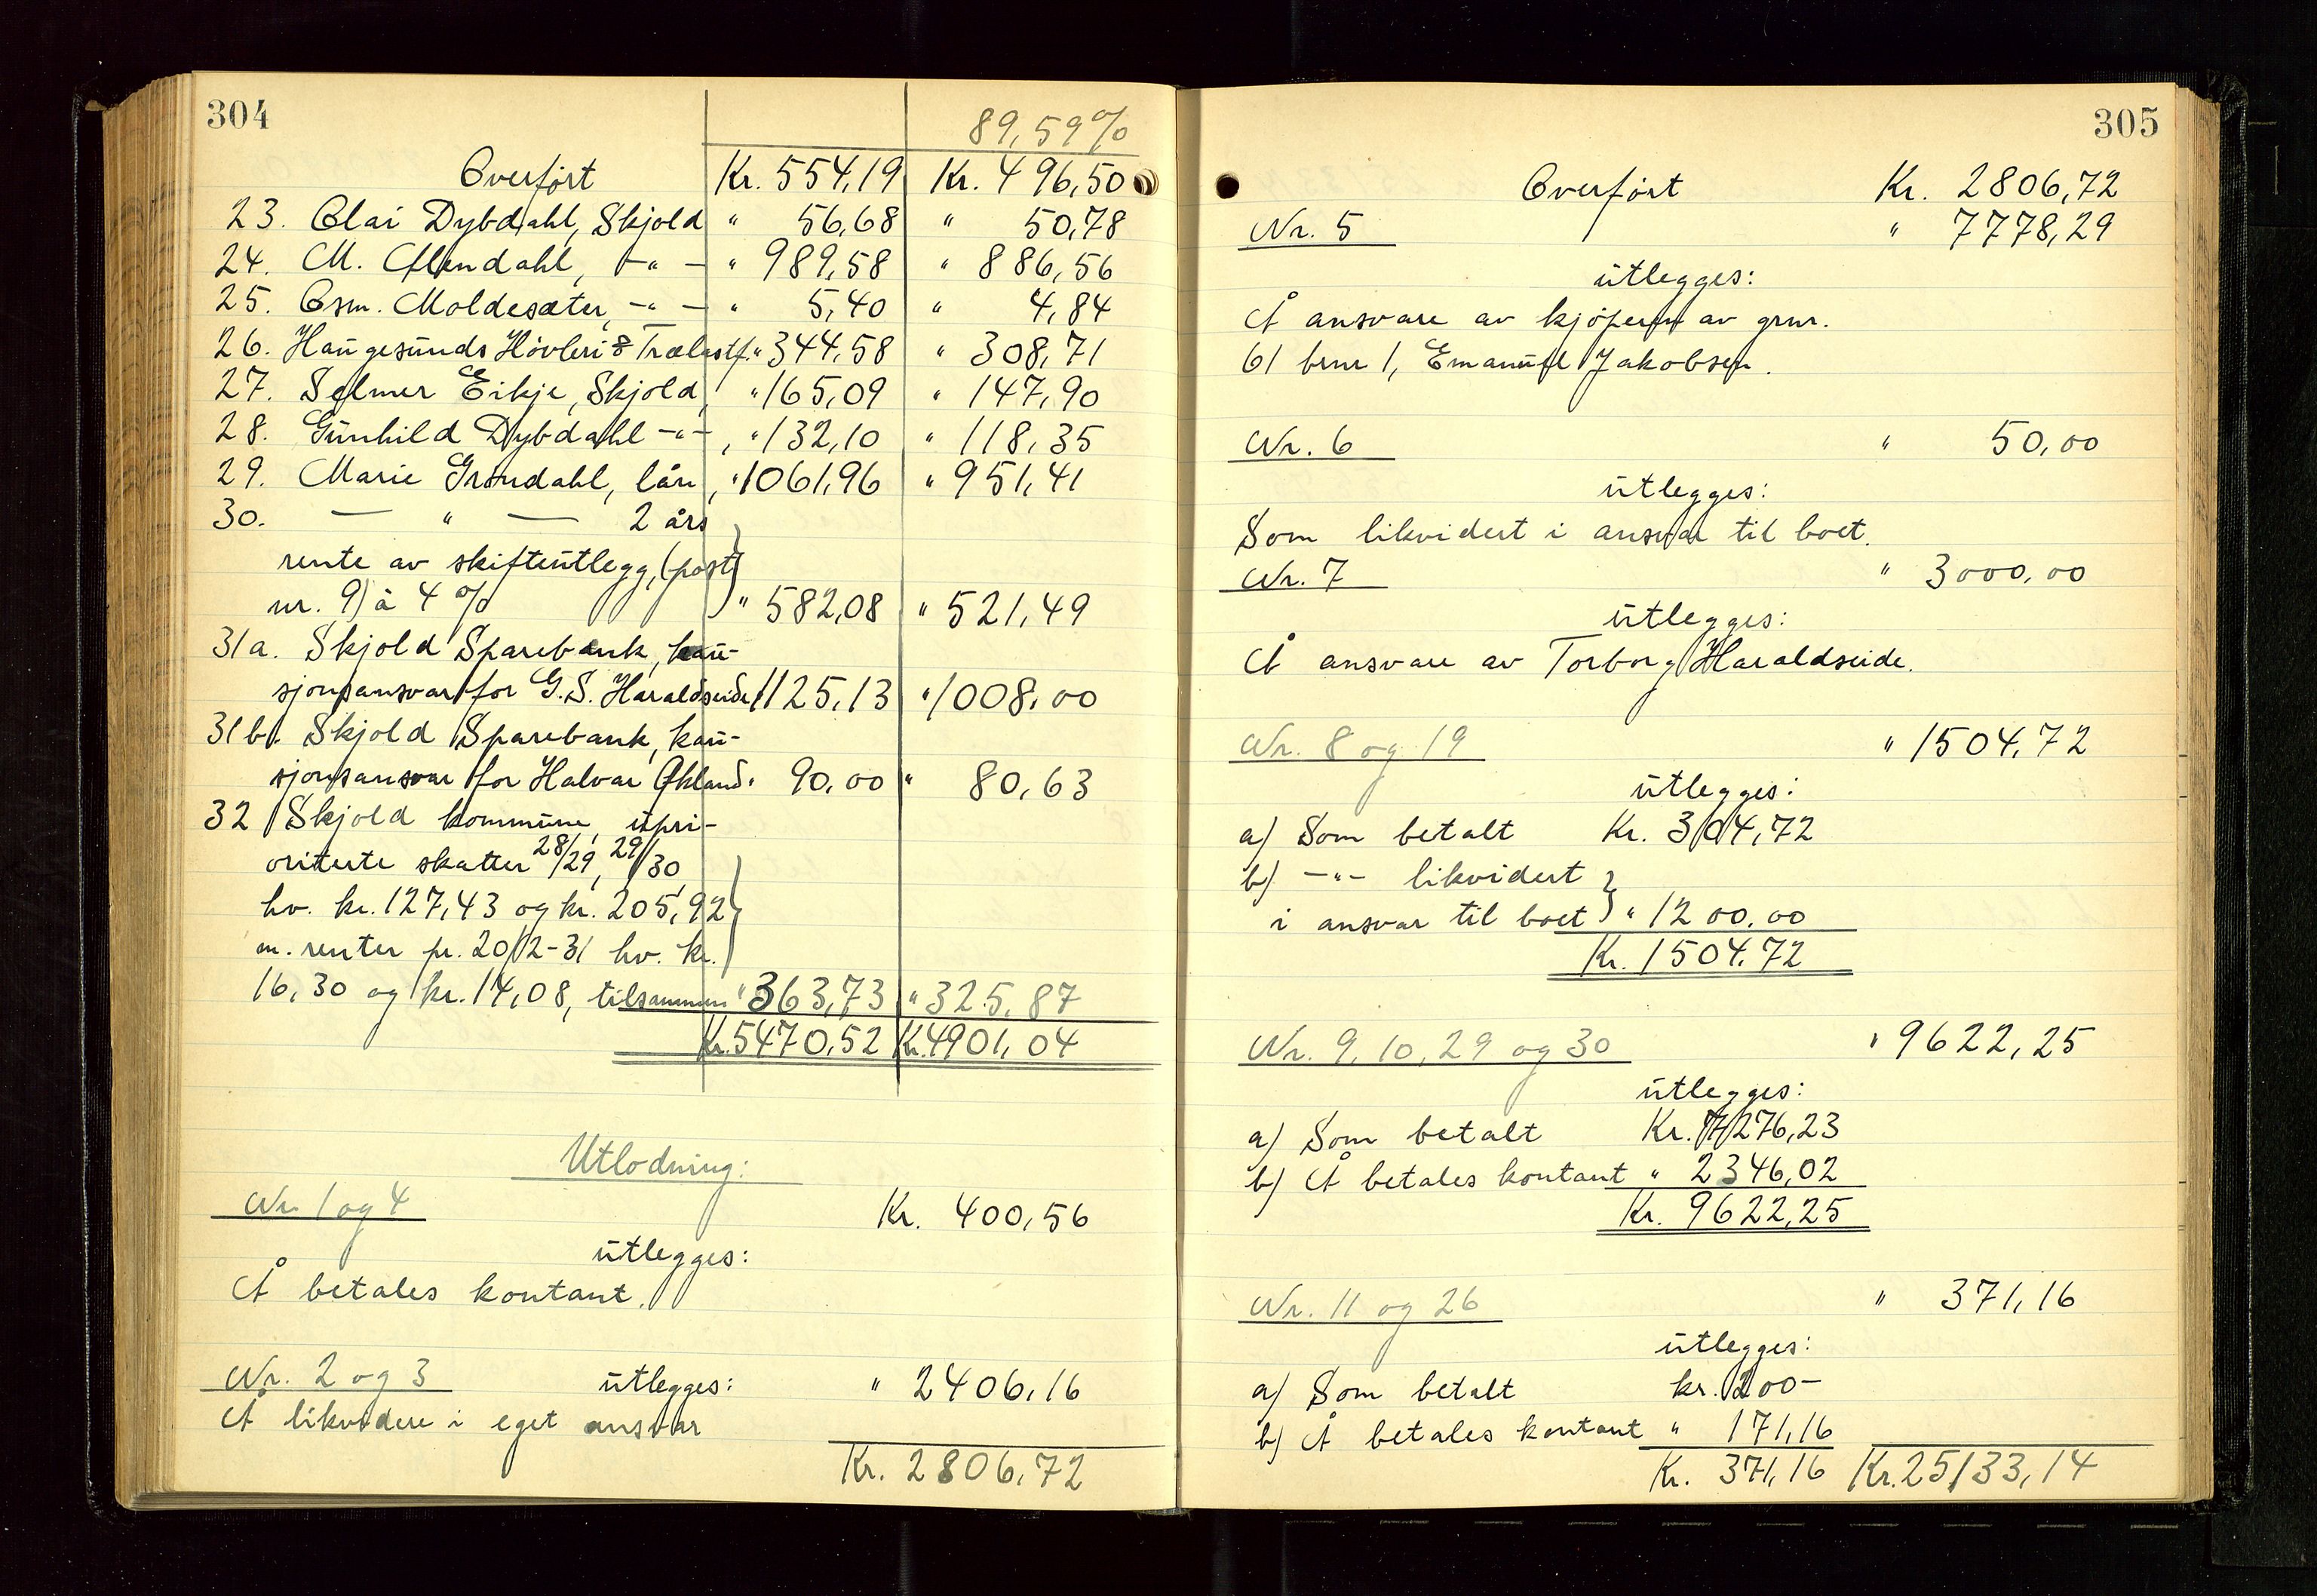 304
89,59%
Overført Kr. 554,19 Kr. 496,50
23. Olai Dybdahl, Skjold " 56,68 " 50,78
24. M. Alendahl, -"- " 989,58 " 886,56
25. Osm. Moldesæter, -"- " 5,40 " 4,84
26. Haugesunds Høvleri & Trælastf. " 344,58 " 308,71
27. Selmer Eikje, Skjold, " 165,09 " 147,90
28. Gunhild Dybdahl -"-, " 132,10 " 118,35
29. Marie Grøndahl, lån, " 1061,96 " 951,41
30. — " — 2 års
rente av skifteutlegg, (post
nr. 9) à 4 % " 582,08 " 521,49
31a. Skjold Sparebank, kau-
sjonsansvar for G.S. Haraldseide 1125,13 " 1008,00
31b. Skjold Sparebank, kau-
sjonsansvar for Halvar Økland " 90,00 " 80,63
32 Skjold kommune, upri-
oriterte skatter 28/29, 29/30,
hv. kr. 127,43 og kr. 205,92
m. renter pr. 20/2-31 hv. kr.
16,30 og kr. 14,08, tilsammen " 363,73 " 325,87
Kr. 5470,52 Kr. 4901,04
Utlodning:
Nr. 1 og 4 Kr. 400,56
utlegges:
Å betales kontant.
Nr. 2 og 3 utlegges: " 2406,16
Å likvidere i eget ansvar
Kr. 2806,72
305
Overført Kr. 2806,72
Nr. 5 " 7778,29
utlegges:
Å ansvare av kjøperen av grnr.
61 brnr 1, Emanuel Jakobsen.
Nr. 6 " 50,00
utlegges:
Som likvidert i ansvar til boet.
Nr. 7 " 3000,00
utlegges:
Å ansvare av Torborg Haraldseide.
Nr. 8 og 19 " 1504,72
utlegges:
a) Som betalt Kr. 304,72
b) -"- likvidert
i ansvar til boet " 1200,00
Kr. 1504,72
Nr. 9, 10, 29 og 30 " 9622,25
utlegges:
a) Som betalt Kr. 7276,23
b) Å betales kontant " 2346,02
Kr. 9622,25
Nr. 11 og 26 " 371,16
utlegges:
a) Som betalt kr. 200-
b) Å betales kontant " 171,16
Kr. 371,16 Kr. 25133,14